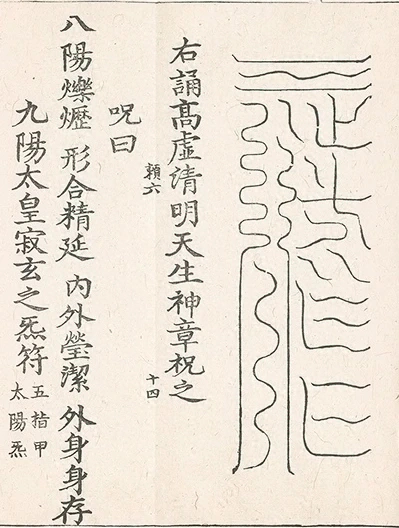 右誦高虛清明天生神章祝之
頼六
十四
呪曰
八陽爍𤑠 形合精延 內外瑩潔 外身身存
九陽太皇寂玄之炁符
五指甲
太陽炁